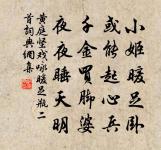 小姬暖足卧
或能起心兵
千金買脚婆
夜夜睡天明
黄庭堅戏咏暖足瓶二
首詞典網集